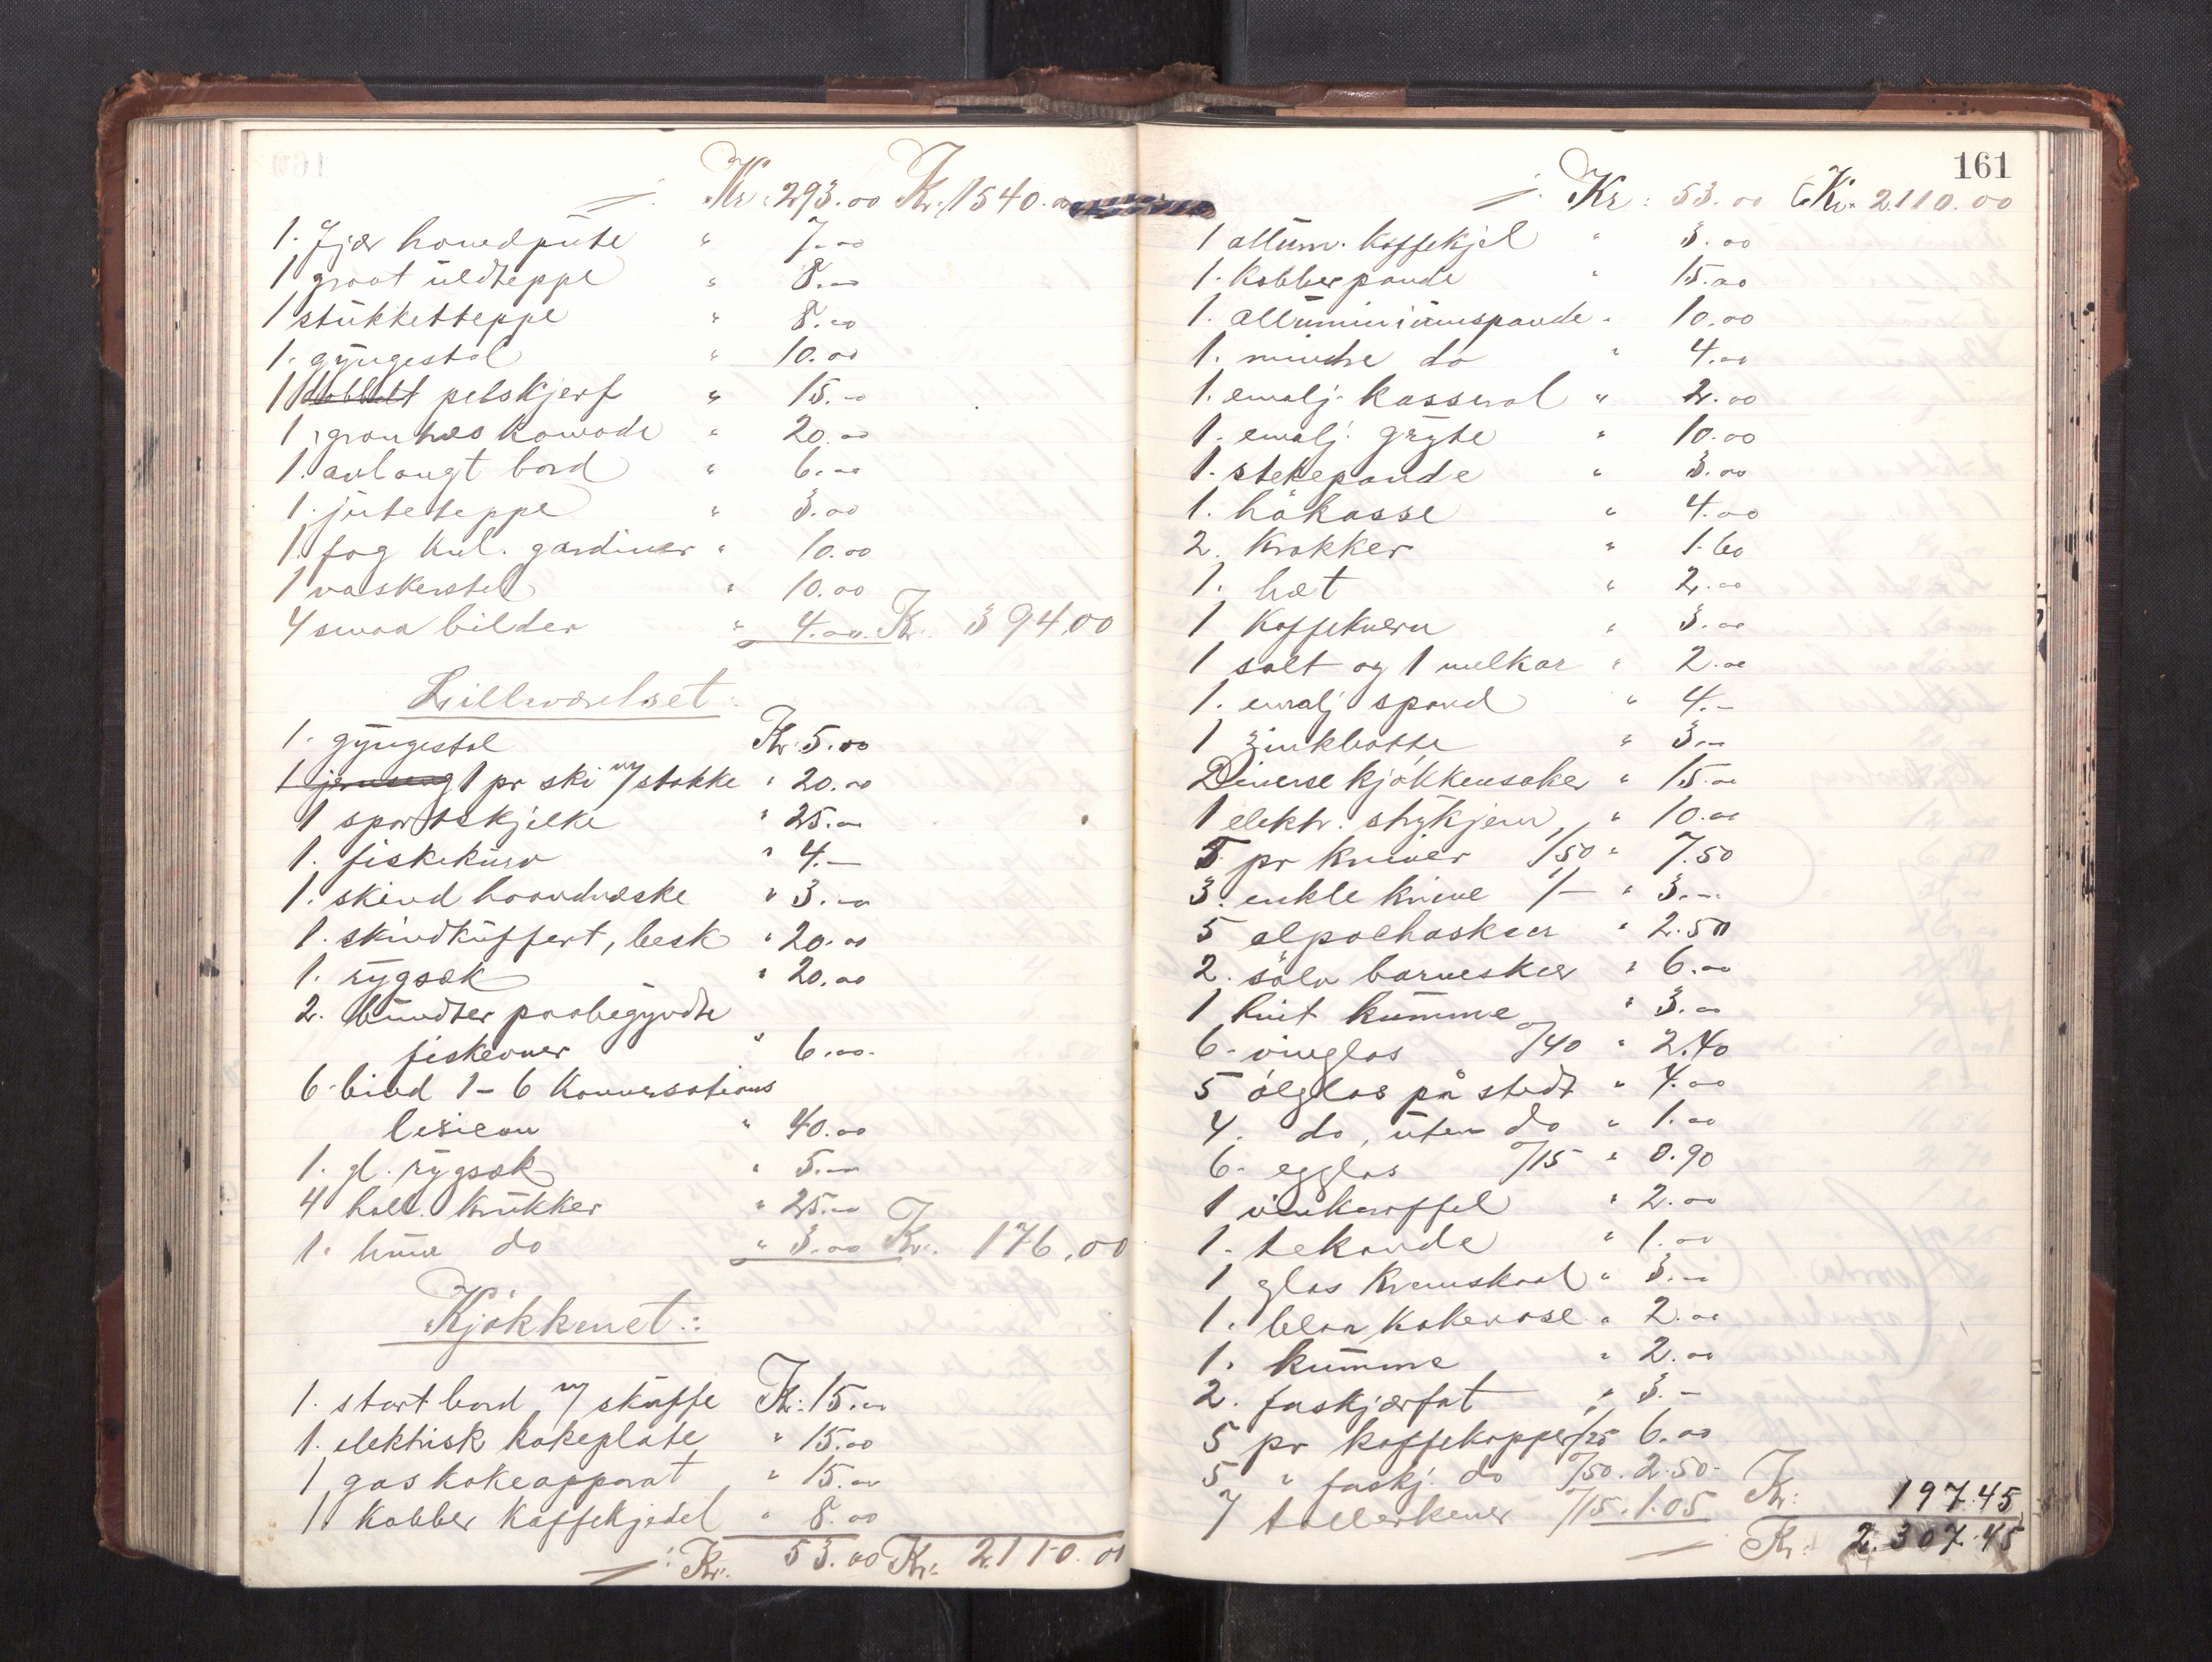 ÷ Kr. 293.00 Kr. 1540.00
1. fjær hovedpute " 7.00
1 graat uldteppe " 8.00
1 stukketteppe " 8.00
1. gyngestol " 10.00
1 dobbelt pelskjerf " 15.00
1 grantræs komode " 20.00
1. avlangt bord " 6.00
1. juteteppe " 3.00
1. fag hul. gardiner " 10.00
1 vaskerstel " 10.00
4 smaa bilder " 4.00 Kr. 394,00
Lilleværelset:
1. gyngestol Kr. 5.00
1 jernseng 1 pr ski m/stokke " 20.00
1 sportskjelke " 25.00
1. fiskekurv " 4.—
1. skind haandvæske " 3.00
1. skindkuffert, besk " 20.00
1. rygsæk " 20.00
2. bundter paabegyndte
fiskevner " 6.00
6 bind 1-6 Konversations
lexicon " 40.00
1. gl. rygsæk " 5.00
4 holl. krukker " 25.00
1. brun do " 3.00 Kr. 176,00
Kjökkenet:
1. stort bord m/ skuffe Kr. 15.00
1. elektrisk kokeplate " 15.00
1 gaskokeapparat " 15.00
1. Kobber Kaffekjedel " 8.00
÷ Kr. 53.00 Kr. 2110.00
161
÷ Kr: 53.00 Kr. 2110.00
1 allum. Kaffekjel " 3.00
1. Kobberpande " 15.00
1. alluminiumspande " 10.00
1. mindre do " 4.00
1. emalj. kasserol " 2.00
1. emalj. gryte " 10.00
1. stekepande " 3.00
1. hökasse " 4.00
2. Krakker " 1.60
1. bæt " 2.00
1 Kaffekvern " 3.00
1 salt og 1 melkar " 2.00
1. emalj spand " 4.—
1 zinkbötte " 3.—
Diverse kjökkensaker " 15.00
1 elektr. strykjern " 10.00
5 pr kniver 1/50 " 7.50
3. enkle knive 1/— " 3.—
5 alpachaskeer " 2.50
2. sölv barneskeer " 6.00
1 hvit kumme " 3.00
6. vinglas °/40 " 2.40
5 ölglas på stedt " 4.00
4. do, uten do " 1.00
6. egglas °/15 " 0.90
1 vinkaraffel " 2.00
1. tekande " 1.00
1 glas Kremskaal " 3.00
1. blaa kakevase " 2.00
1. kumme " 2.00
2. faskjærfat " 3.—
5 pr kaffekopper 1/25 6.00
5 " faskj. do °/50. 2.50
7 tallerkener °/15. 1.05 Kr: 197.45
÷ Kr: 2.307.45